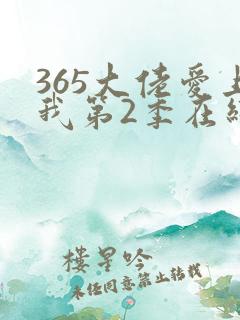 365大佬爱上
我第2季在线
楼星吟
未经同意禁止转载